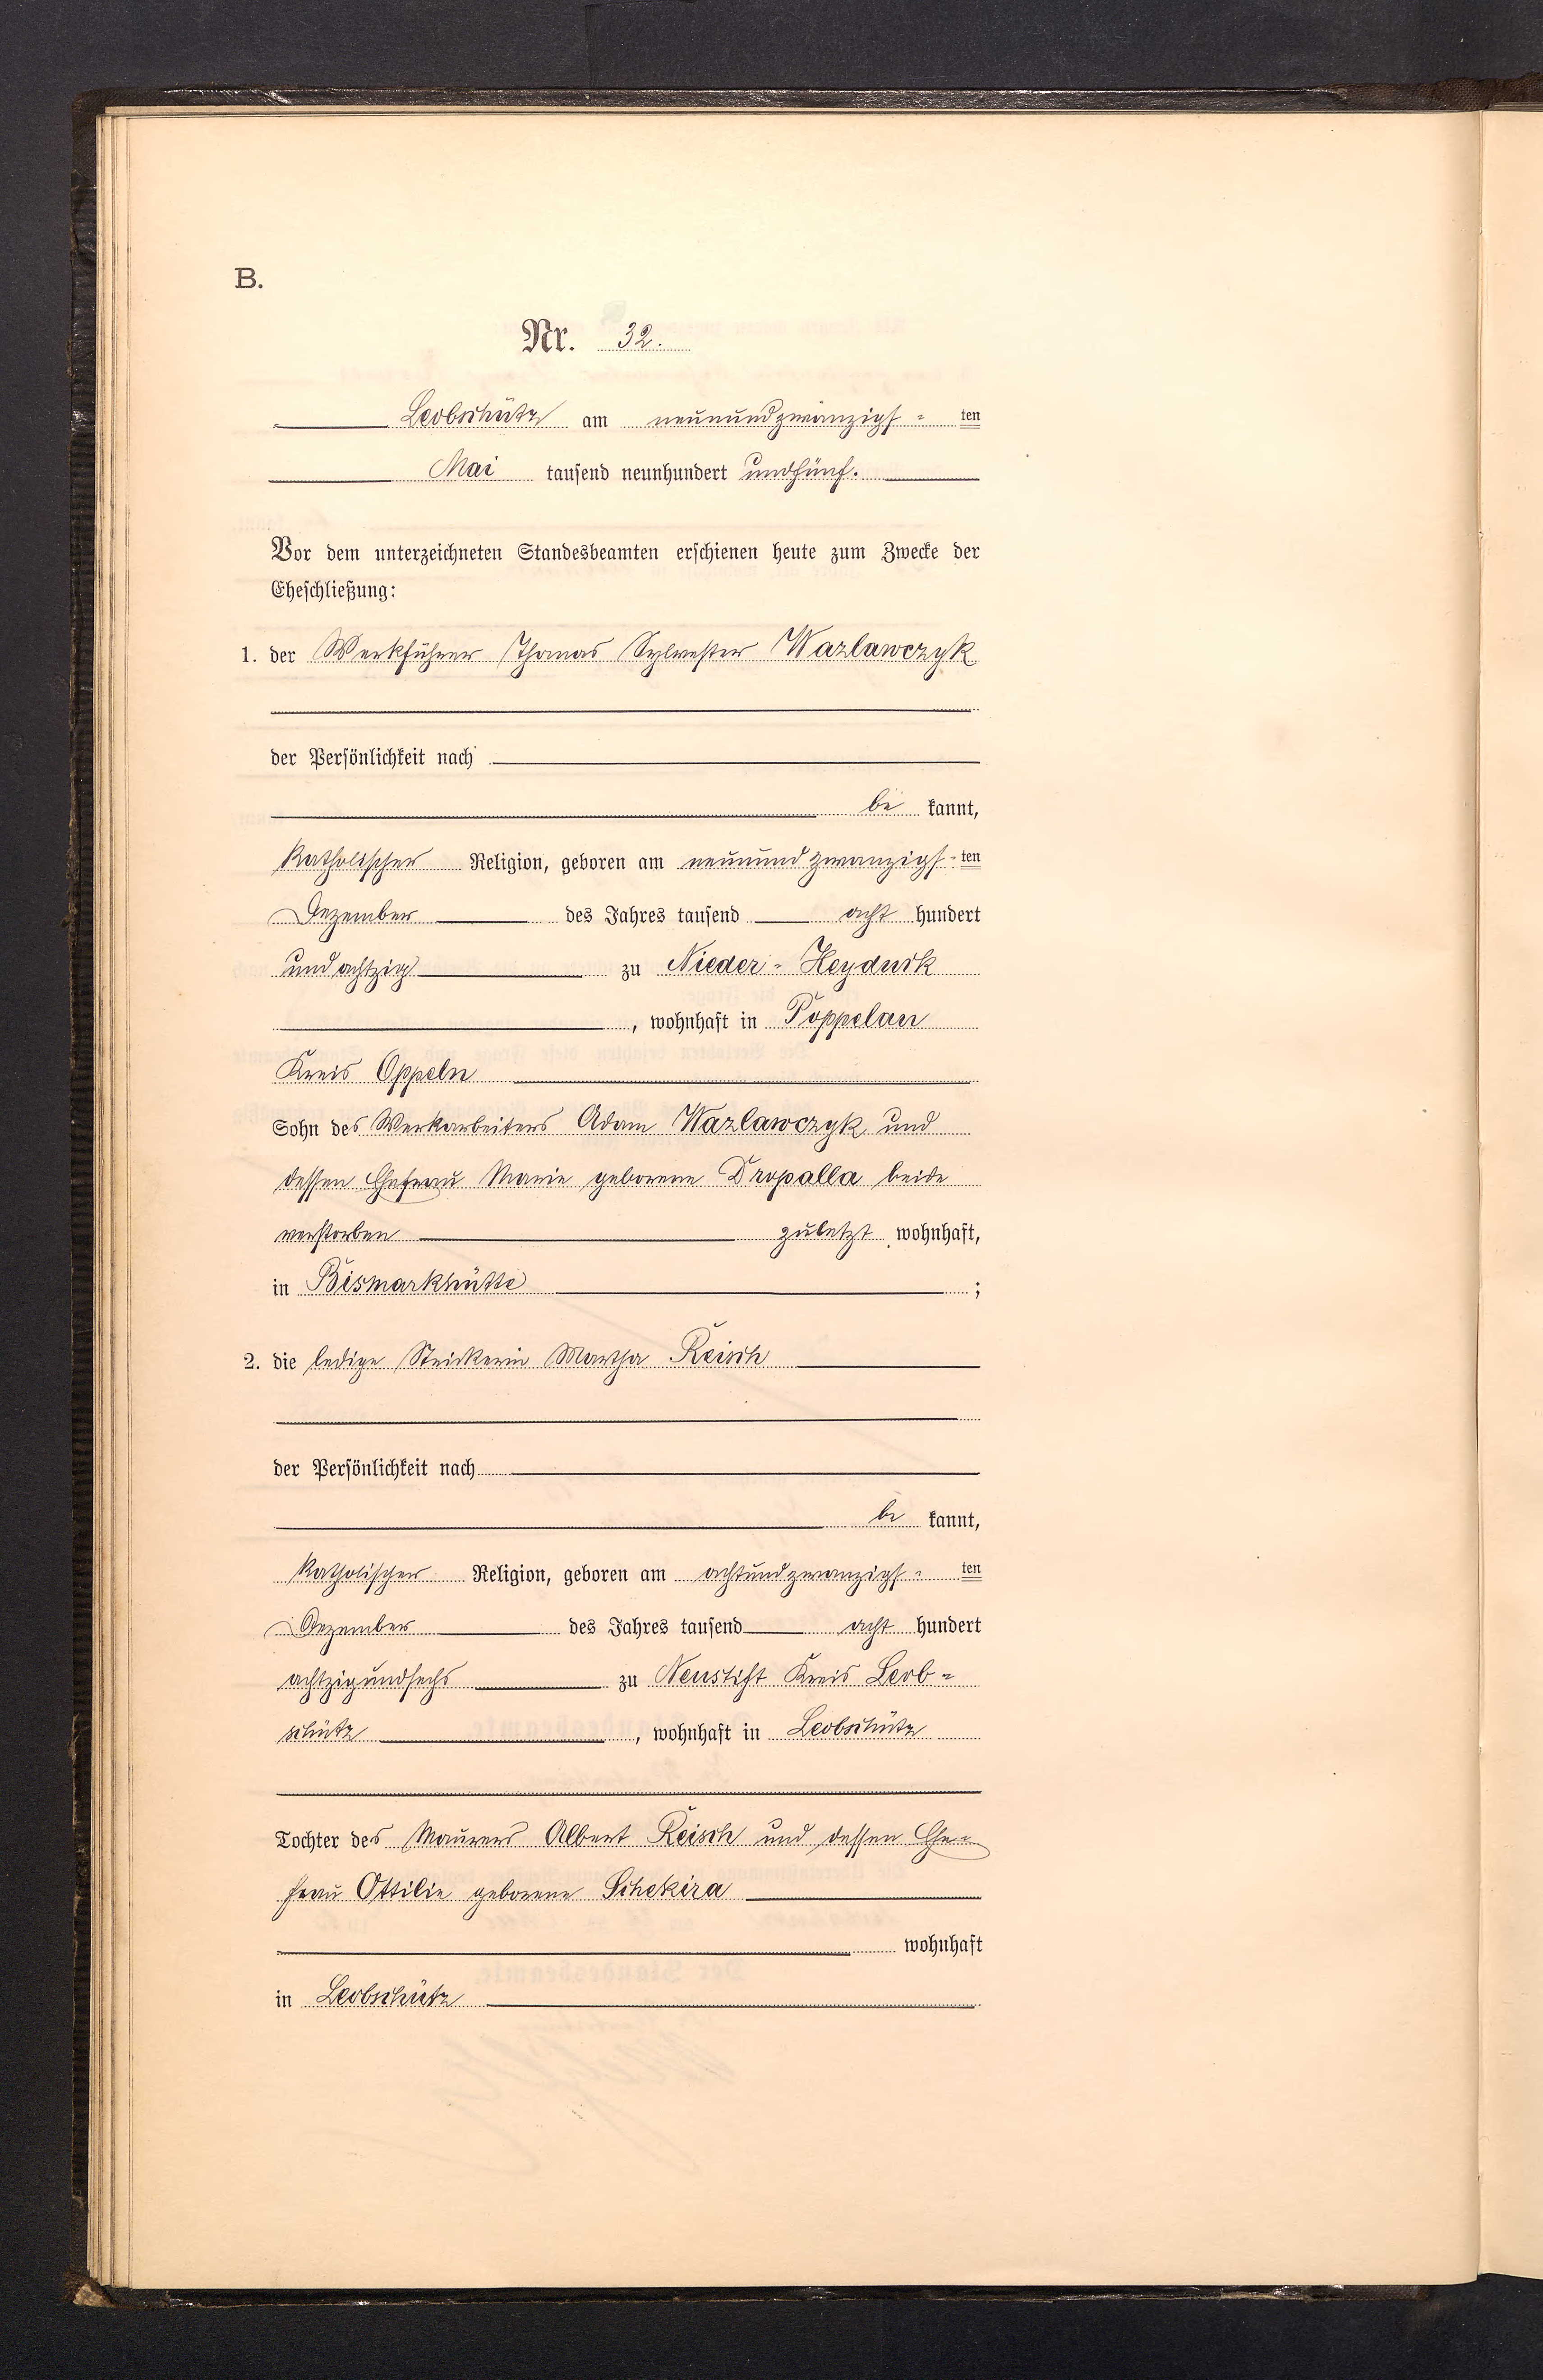 B.
Nr. 32.
Leobschütz am neunundzwanzigs=ten
Mai tausend neunhundert undfünf.
Vor dem unterzeichneten Standesbeamten erschienen heute zum Zwecke der
Eheschließung:
1. der Werkführer Thomas Sylvester Wazlawczyk
der Persönlichkeit nach
be kannt,
katholischer Religion, geboren am neunundzwanzigs=ten
Dezember des Jahres tausend acht hundert
und achtzig zu Nieder-Heyduck
, wohnhaft in Poppelau
Kreis Oppeln
Sohn des Werkarbeiters Adam Wazlawczyk und
dessen Ehefrau Marie geborene Dropalla beide
verstorben zuletzt wohnhaft,
in Bismarkhütte ;
2. die ledige Strickerin Martha Reisch
der Persönlichkeit nach
be kannt,
katholischer Religion, geboren am achtundzwanzigs=ten
Dezember des Jahres tausend acht hundert
achtzigundsechs zu Neustift Kreis Leob=
schütz , wohnhaft in Leobschütz
Tochter des Maurers Albert Reisch und dessen Ehe=
frau Ottilie geborene Schekira
wohnhaft
in Leobschütz